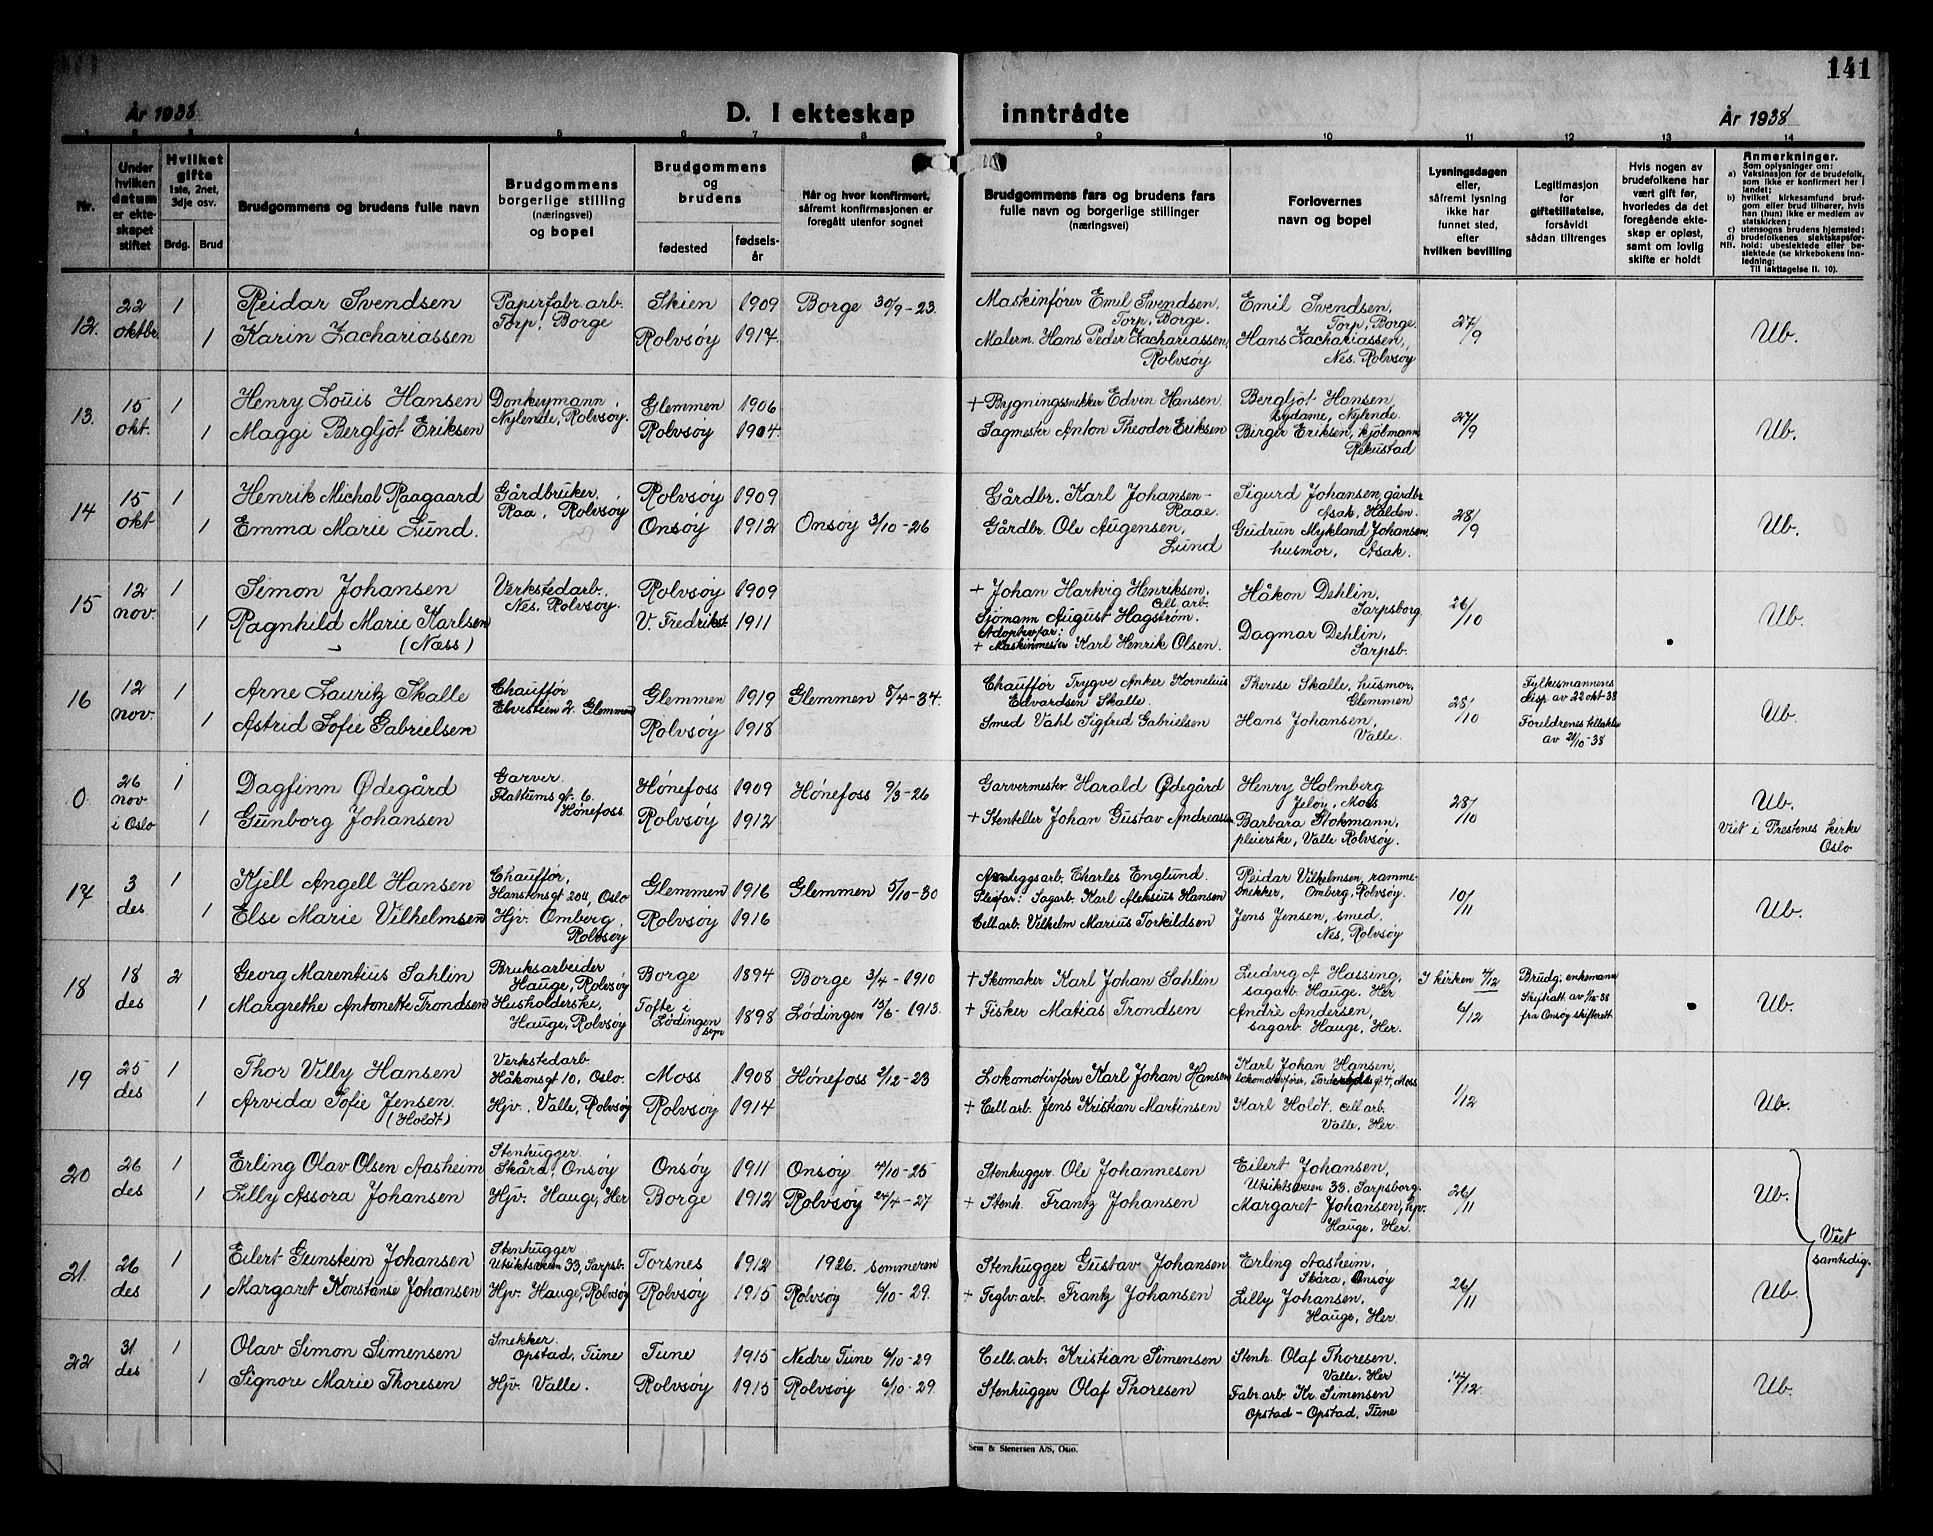 141
År 1938
D. I ekteskap
inntrådte
År 1938
1 2 3 4 5 6 7 8 9 10 11 12 13 14
Nr.
Under hvilken datum er ekteskapet stiftet
Hvilket gifte 1ste, 2net, 3dje osv.
Brdg. Brud
Brudgommens og brudens fulle navn
Brudgommens borgerlige stilling (næringsvei) og bopel
Brudgommens og brudens
fødested
fødselsår
Når og hvor konfirmert, såfremt konfirmasjonen er foregått utenfor sognet
Brudgommens fars og brudens fars fulle navn og borgerlige stillinger (næringsvei)
Forlovernes navn og bopel
Lysningsdagen eller, såfremt lysning ikke har funnet sted, efter hvilken bevilling
Legitimasjon for giftetillatelse, forsåvidt sådan tiltrenges
Hvis nogen av brudefolkene har vært gift før, hvorledes da det foregående ekteskap er opløst, samt om lovlig skifte er holdt
Anmerkninger.
Som oplysninger om:
a) Vaksinasjon for de brudefolk, som ikke er konfirmert her i landet;
b) hvilket kirkesamfund brudgom eller brud tilhører, hvis han (hun) ikke er medlem av statskirken;
c) utensogns brudens hjemsted;
d) brudefolkenes slektskapsforhold: ubeslektede eller beslektede (se kirkebokens innledning;
NB.
Til iakttagelse II. 10).
12. 22 oktbr. 1 Reidar Svendsen Papirfabr. arb. Torp, Borge Skien 1909 Borge 30/9-23. Maskinfører Emil Svendsen, Torp, Borge. Emil Svendsen, Torp, Borge. 27/9 Ub.
1 Karin Zachariassen Rolvsøy 1917. Malerm. Hans Peder Zachariassen, Rolvsøy Hans Zachariassen, Nes, Rolvsøy
13. 15 okt. 1 Henry Louis Hansen Donkeymann, Nylende, Rolvsøy. Glemmen 1906 + Bygningssnekker Edvin Hansen Bergljot Hansen, sydame, Nylende. 27/9 Ub.
1 Maggi Bergljot Eriksen Rolvsøy 1904. Sagmester Anton Theodor Eriksen Birger Eriksen, kjølmann, Rekustad
14 15 okt 1 Henrik Michal Raagaard Gårdbruker, Raa, Rolvsøy Rolvsøy 1909 Gårdbr. Karl Johansen - Raae. Sigurd Johansen, gårdbr Asak, Halden. 28/9 Ub.
1 Emma Marie Lund. Onsøy 1912 Onsøy 3/10-26 Gårdbr. Ole Augensen, Lund Gudrun Mykland Johansen, husmor, Asak.
15 12 nov. 1 Simon Johansen Verkstedarb., Nes, Rolvsøy. Rolvsøy 1909 + Johan Hartvig Henriksen, cell. arb. Håkon Dehlin, Sarpsborg 26/10 Ub.
1 Ragnhild Marie Karlsen (Næss) V. Fredrikst. 1911 Sjømann August Hagstrøm. Adoptivfar: + Maskinmester Karl Henrik Olsen. Dagmar Dehlin, Sarpsb.
16 12 nov. 1 Arne Lauritz Skalle Chauffør Glemmen Glemmen 1919 Glemmen 8/4-34. Chauffør Trygve Anker Kornelius Edvardsen Skalle. Therese Skalle, husmor, Glemmen 28/10 Fylkesmannens disp. av 22 okt-38 Ub.
1 Astrid Sofie Gabrielsen Rolvsøy 1918 Smed Vahl Sigfred Gabrielsen Hans Johansen, Valle. Foreldrenes tillatelse av 21/10-38
0 26 nov i Oslo 1 Dagfinn Ødegård Garver. Flattums gt. 6. Hønefoss Hønefoss 1909 Hønefoss 9/3-26 Garvermester Harald Ødegård Henry Holmberg Jeløy, Moss 28/10 Ub.
1 Gunborg Johansen Rolvsøy 1912 + Stenteller Johan Gustav Andreassen Barbara Glokmann, pleierske, Valle Rolvsøy. Viet i Prestenes kirke Oslo
17 3 des 1 Kjell Angell Hansen Chauffør, Hanstensgt 20II, Oslo Glemmen 1916 Glemmen 5/10-30 Anleggsarb. Charles Englund. Pleiefar: Sagarb. Karl Aleksius Hansen Reidar Vilhelmsen, rammesnekker, Omberg, Rolvsøy. 10/11 Ub.
1 Else Marie Vilhelmsen Hjv. Omberg, Rolvsøy Rolvsøy 1916 Cell. arb. Vilhelm Marius Torkildsen Jens Jensen, smed, Nes, Rolvsøy
18 18 des 2 Georg Marentius Sahlin Bruksarbeider Hauge, Rolvsøy Borge 1894 Borge 3/4-1910 + Skomaker Karl Johan Sahlin Ludvig A Hassing, sagarb. Hauge. Her I kirken 4/12 Brudg. enkemann Skifteatt. av 1/12-38 fra Onsøy skifterett. Ub.
1 Margrethe Antonette Trondsen Husholderske, Hauge, Rolvsøy Tofte i Lødingen 1898 Lødingen 15/6-1913. + Fisker Matias Trondsen Andrè Andersen, sagarb. Hauge, Her. 6/12
19 25 des 1 Thor Villy Hansen Verkstedarb Håkonsgt 10, Oslo. Moss 1908 Hønefoss 2/12-23 Lokomotivfører Karl Johan Hansen Karl Johan Hansen, lokomotivfører, Moss 1/12 Ub.
1 Arvida Sofie Jensen. (Holdt) Hjv. Valle, Rolvsøy Rolvsøy 1914 + Cell. arb. Jens Kristian Martinsen Karl Holdt, cell. arb. Valle, Her.
20 26 des 1 Erling Olav Olsen Aasheim Stenhugger Skåra, Onsøy Onsøy 1911 Onsøy 4/10-25 Stenhugger Ole Johannesen Eilert Johansen, Utsiktsveien 33. Sarpsborg. 26/11 Ub.
1 Lilly Assora Johansen Hjv. Hauge, Her Borge 1912 Rolvsøy 24/4-27 + Stenh. Frantz Johansen Margaret Johansen, hjv. Hauge, Her.
Viet samtidig.
21. 26 des 1 Eilert Gunstein Johansen Stenhugger Utsiktsveien 33, Sarpsb. Torsnes 1912 1926. sommeren Stenhugger Gustav Johansen Erling Aasheim, Skåra, Onsøy 26/11 Ub.
1 Margaret Konstanse Johansen Hjv. Hauge, Rolvsøy Rolvsøy 1915 Rolvsøy 6/10-29. + Teglv. arb. Frantz Johansen Lilly Johansen, Hauge, Her.
22 31 des 1 Olav Simon Simensen Snekker. Opstad, Tune Tune 1915 Nedre Tune 6/10-29 Cell. arb. Kristian Simensen Stenh. Olaf Thoresen. Valle. Her 14/12 Ub.
1 Signore Marie Thoresen Hjv. Valle. Rolvsøy 1915 Rolvsøy 6/10-29. Stenhugger Olaf Thoresen Fabr. arb Kr. Simensen Opstad - Opstad, Tune
Sem & Stenersen A/S, Oslo.